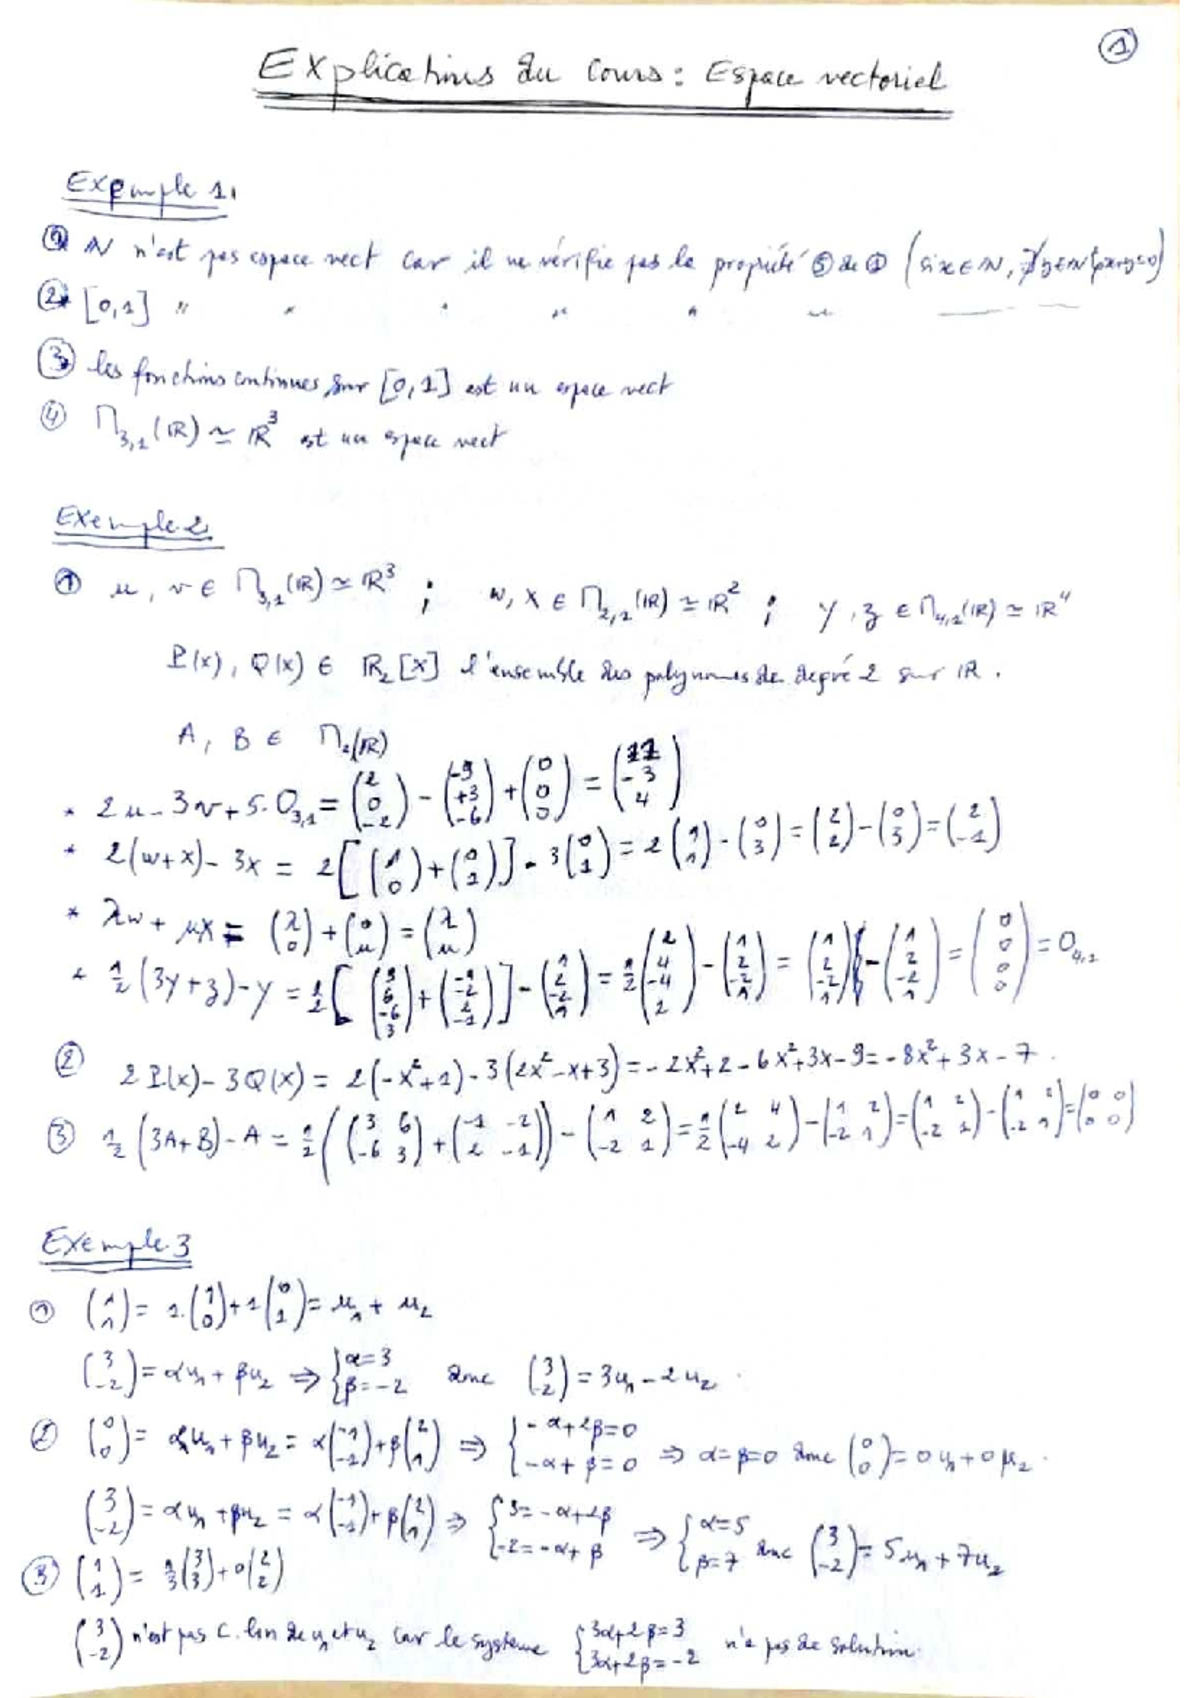 ①
Explications du Cours : Espace vectoriel
Exemple 1.
① ℕ n'est pas espace vect car il ne vérifie pas la propriété ⑤ de ① (si x ∈ ℕ, ∄ y ∈ ℕ / x+y=0)
② [0,1] " " " " " "
③ les fonctions continues sur [0,1] est un espace vect
④ M₃,₁(ℝ) ≃ ℝ³ est un espace vect
Exemple 2.
① u, v ∈ M₃,₁(ℝ) ≃ ℝ³ ; w, x ∈ M₂,₁(ℝ) ≃ ℝ² ; y, z ∈ M₄,₁(ℝ) ≃ ℝ⁴
P(x), Q(x) ∈ ℝ₂[X] l'ensemble des polynomes de degré 2 sur ℝ.
A, B ∈ M₂(ℝ)
* 2u - 3v + 5.O₃,₁ = (2 0 -2) - (-9 +3 -6) + (0 0 0) = (11 -3 4)
* 2(w+x) - 3x = 2[(1 0)+(0 1)] - 3(0 1) = 2(1 1) - (0 3) = (2 2) - (0 3) = (2 -1)
* λw + μx = (λ 0) + (0 μ) = (λ μ)
* 1/2 (3y+z) - y = 1/2 [(3 6 -6 3) + (-1 -2 2 -1)] - (1 2 -2 1) = 1/2 (2 4 -4 2) - (1 2 -2 1) = (1 2 -2 1) - (1 2 -2 1) = (0 0 0 0) = O₄,₁
② 2P(x) - 3Q(x) = 2(-x²+1) - 3(2x²-x+3) = -2x²+2-6x²+3x-9 = -8x²+3x-7.
③ 1/2 (3A+B) - A = 1/2 ((3 6 -6 3) + (-1 -2 2 -1)) - (1 2 -2 1) = 1/2 (2 4 -4 2) - (1 2 -2 1) = (1 2 -2 1) - (1 2 -2 1) = (0 0 0 0)
Exemple 3
① (1 1) = 1.(1 0) + 1(0 1) = u₁ + u₂
(3 -2) = αu₁ + βu₂ ⇒ {α=3 β=-2 donc (3 -2) = 3u₁ - 2u₂.
② (0 0) = αu₁ + βu₂ = α(-1 -1) + β(2 1) ⇒ {-α+2β=0 -α+β=0 ⇒ α=β=0 donc (0 0) = 0u₁ + 0u₂.
(3 -2) = αu₁ + βu₂ = α(-1 -1) + β(2 1) ⇒ {3=-α+2β -2=-α+β ⇒ {α=5 β=7 donc (3 -2) = 5u₁ + 7u₂
③ (1 1) = 1/3 (3 3) + 0(2 2)
(3 -2) n'est pas C. lin de u₁ et u₂ car le système {3α+2β=3 3α+2β=-2 n'a pas de solution.